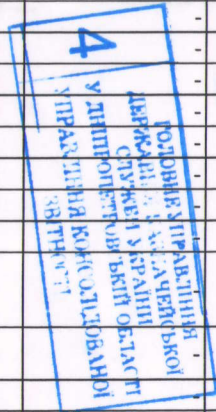 4
ГОЛОВНЕ УПРАВЛІННЯ
ДЕРЖАВНОЇ КАЗНАЧЕЙСЬКОЇ
СЛУЖБИ УКРАЇНИ
У ДНІПРОПЕТРОВСЬКІЙ ОБЛАСТІ
УПРАВЛІННЯ КОНСОЛІДОВАНОЇ
ЗВІТНОСТІ